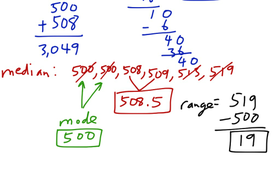 500
+ 508
3,049
10
- 6
40
36
40
median: 500, 500, 508, 509, 515, 519
508.5
mode
500
range= 519
- 500
19